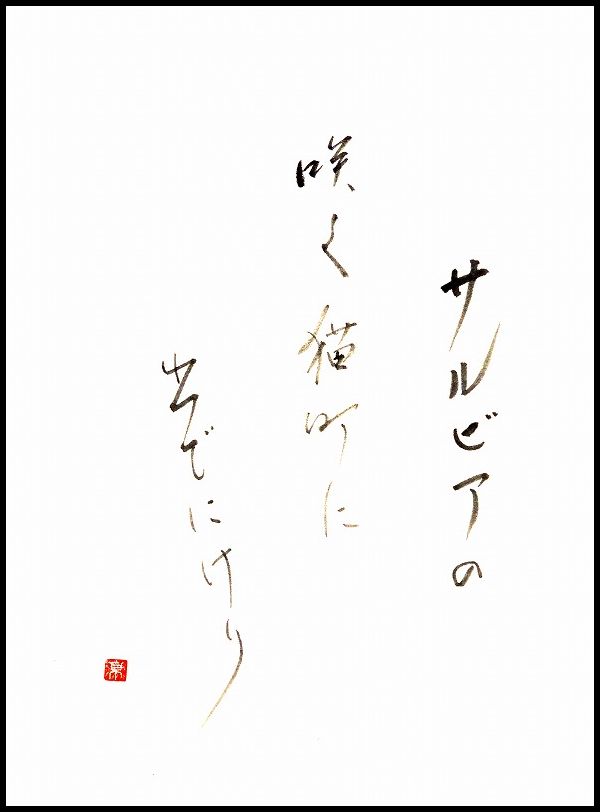 サルビアの
咲く猫町に
出でにけり